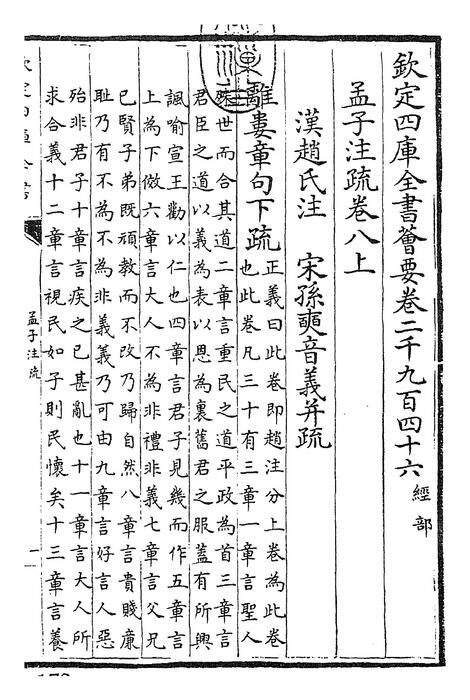 欽定四庫全書薈要卷二千九百四十六 經部
孟子注疏卷八上
漢趙氏注 宋孫奭音義并疏
離婁章句下疏 正義曰此卷即趙注分上卷為此卷
也此卷凡三十有三章一章言聖人
殊世而合其道二章言重民之道平政為首三章言
君臣之道以義為表以恩為裏舊君之服蓋有所興
諷喻宣王勸以仁也四章言君子見幾而作五章言
上為下傚六章言大人不為非禮非義七章言父兄
已賢子弟既頑教而不改乃歸自然八章言貴賤廉
恥乃有不為不為非義義乃可由九章言好言人惡
殆非君子十章言疾之已甚亂也十一章言大人所
求合義十二章言視民如子則民懷矣十三章言養
孟子注疏
一